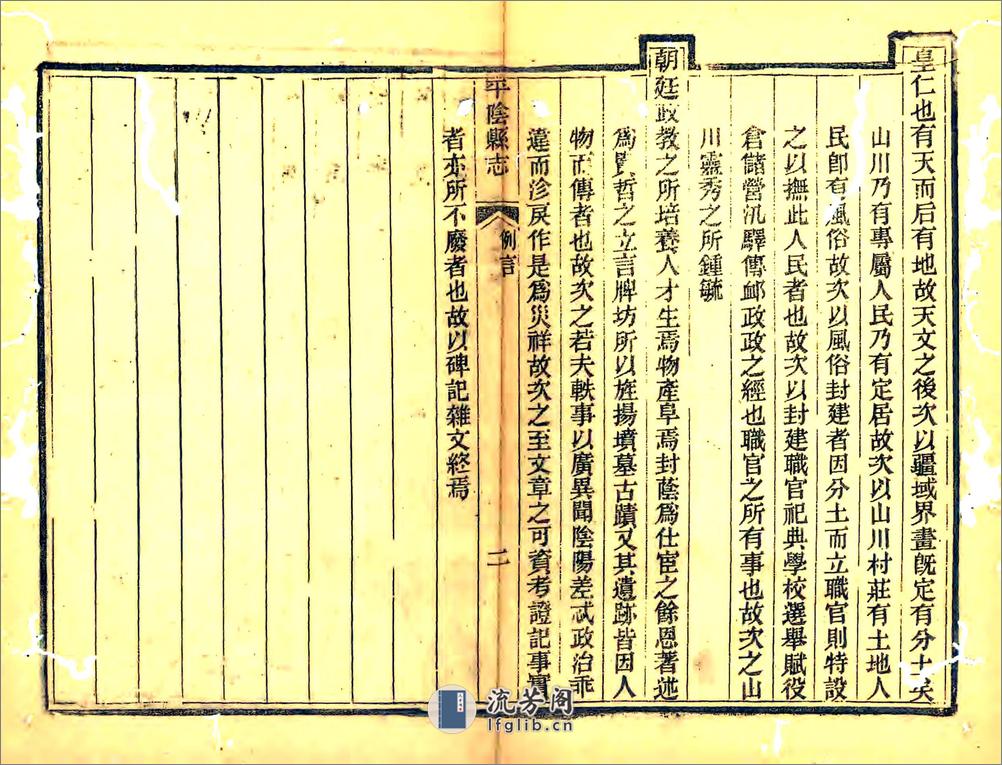 皇仁也有天而后有地故天文之後次以疆域界畫旣定有分土矣
山川乃有專屬人民乃有定居故次以山川村莊有土地人
民卽有風俗故次以風俗封建者因分土而立職官則特設
之以撫此人民者也故次以封建職官祀典學校選舉賦役
倉儲營汛驛傳郵政政之經也職官之所有事也故次之山
川靈秀之所鍾毓
朝廷政教之所培養人才生焉物產阜焉封蔭爲仕宦之餘恩著述
爲賢哲之立言牌坊所以旌揚墳墓古蹟又其遺跡皆因人
物而傳者也故次之若夫軼事以廣異聞陰陽差忒政治乖
違而沴戾作是爲災祥故次之至文章之可資考證記事實
平陰縣志
例言
二
者亦所不廢者也故以碑記雜文終焉
流芳阁
lfglib.cn